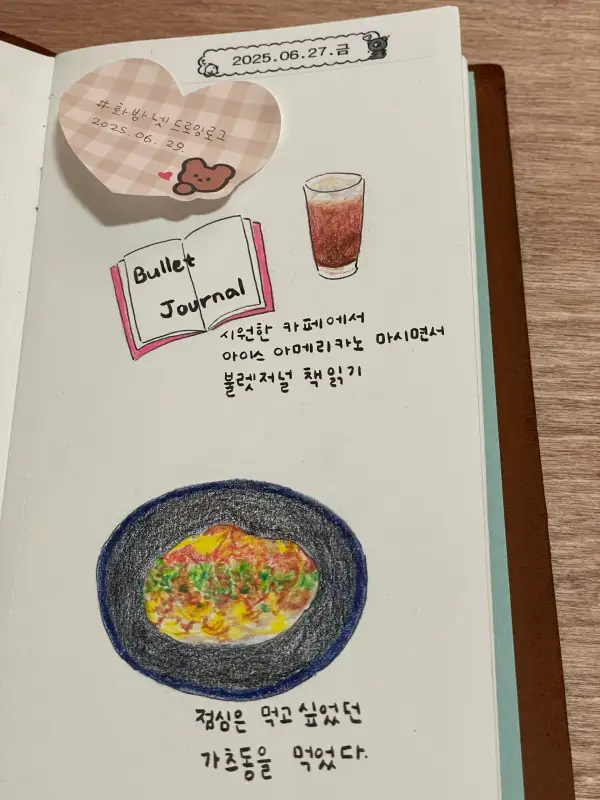 2025.06.27.금
#화방넷 드로잉로그
2025.06.29.
Bullet
Journal
시원한 카페에서
아이스 아메리카노 마시면서
불렛저널 책읽기
점심은 먹고싶었던
가츠동을 먹었다.